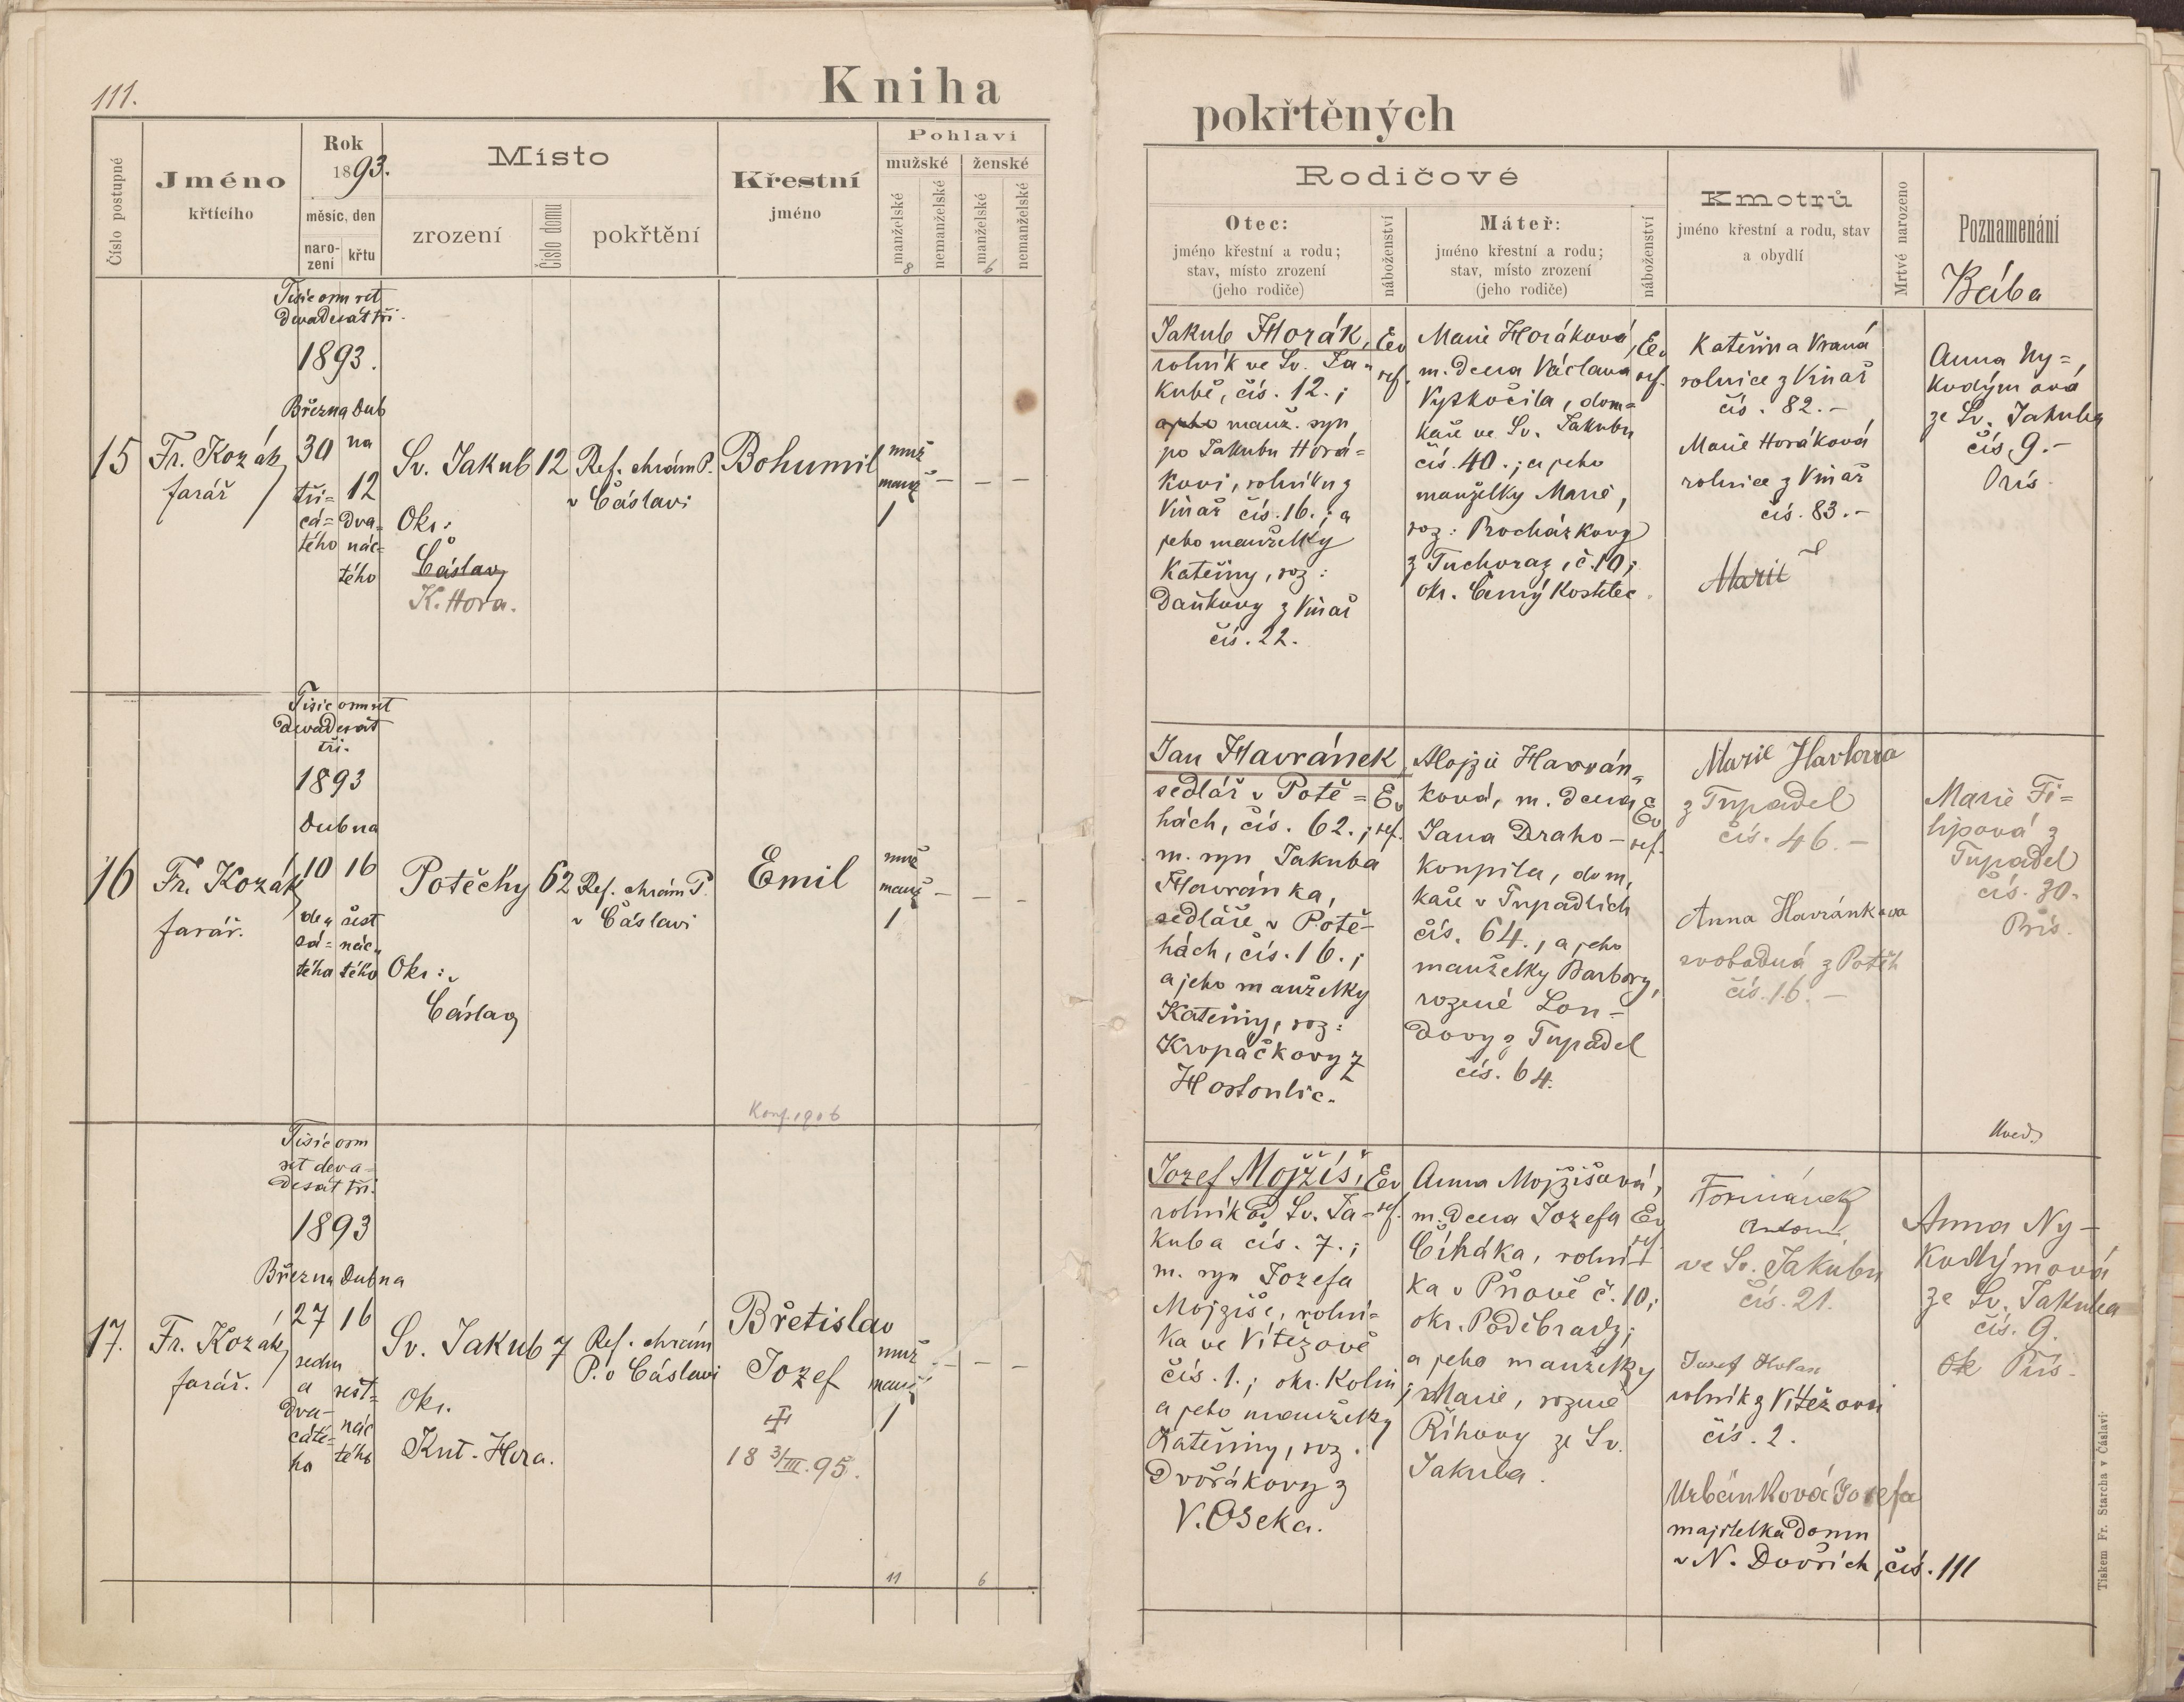 111.
Kniha
pokřtěných
Číslo postupné
Jméno
křtícího
Rok
1893.
měsíc, den
naro-
zení
křtu
Místo
zrození
Číslo domu
pokřtění
Křestní
jméno
Pohlaví
mužské
ženské
manželské
nemanželské
manželské
nemanželské
8
6
Rodičové
Otec:
jméno křestní a rodu;
stav, místo zrození
(jeho rodiče)
náboženství
Máteř:
jméno křestní a rodu;
stav, místo zrození
(jeho rodiče)
náboženství
Kmotrů
jméno křestní a rodu, stav
a obydlí
Mrtvé narozeno
Poznamenání
Bába
Tisíc osm set
devadesát tři.
1893.
Března Dub
na
15
Fr. Kozák,
farář
30
tři=
cá=
tého
12
dva=
nác-
tého
Sv. Jakub
Okr:
Čáslav
K. Hora.
12
Ref. chrám P.
v Čáslavi
Bohumil
muž
manž
1
Jakub Horák,
rolník ve Sv. Ja=
kubě, čís. 12.;
manž. syn
po Jakubu Horá=
kovi, rolníku z
Vinař čís. 16.; a
jeho manželky
Kateřiny, roz:
Daňkovy z Vinař
čís. 22.
Ev
ref.
Marie Horáková,
m. dcera Václava
Vyskočila, dom=
káře ve Sv. Jakubu
čís. 40.; a jeho
manželky Marie,
roz: Procházkovy
z Tuchoraz, č. 10;
okr. Černý Kostelec.
Ev
ref.
Kateřina Vraná
rolnice z Vinař
čís. 82.-
Marie Horáková
rolnice z Vinař
čís. 83.-
Marie
Anna Ny=
kodýmová
ze Sv. Jakuba
čís 9.-
Přís.
Tisíc osm set
devadesát
tři.
1893
Dubna
16
Fr. Kozák,
farář.
10
de=
sá=
tého
16
šest
nác=
tého
Potěchy
Okr:
Čáslav
62
Ref. chrám P.
v Čáslavi
Emil
muž
manž
1
Konf. 1906
Jan Havránek,
sedlář v Potě=
hách, čís. 62.;
m. syn Jakuba
Havránka,
sedláře v Potě-
hách, čís. 16.;
a jeho manželky
Kateřiny, roz:
Kropáčkovy z
Hostoulic.
Ev
ref.
Alojzie Havrán=
ková, m. dcera
Jana Draho-
koupila, dom,
káře v Tupadlích
čís. 64., a jeho
manželky Barbory,
rozené Lon-
dovy z Tupadel
čís. 64.
Ev
ref.
Marie Havlova
z Tupadel
čís. 46.-
Anna Havránkova
svobodná z Potěh
čís. 16.-
Marie Fi=
lipová z
Tupadel
čís. 30.
Přís.
Tisíc osm
set deva=
desát tři.
1893
Března Dubna
17.
Fr. Kozák,
farář.
27
sedm
a
dva-
cáté-
ho
16
šest-
nác
tého
Sv. Jakub
Okr.
Kut. Hora.
7
Ref. chrám
P. v Čáslavi
Břetislav
Jozef
18 3/III. 95.
muž
manž
1
Jozef Mojžíš,
rolník od Sv. Ja-
kuba čís. 7.;
m. syn Jozefa
Mojžíše, rolní=
ka ve Vítězově
čís. 1.; okr. Kolín
a jeho manželky
Kateřiny, roz.
Dvořákovy z
V. Oseka.
Ev
ref.
Anna Mojžíšová,
m. dcera Jozefa
Čiháka, rolní-
ka v Pňově č. 10;
okr. Poděbrady;
a jeho manželky
Marie, rozené
Říhovy ze Sv.
Jakuba.
Ev
ref.
Formánek
Antonín
ve Sv. Jakubu
čís. 21.
Josef
rolník z Vítězova
čís. 2.
Urbánková Josefa
majitelka domu
v N. Dvořích, čís. 111
Anna Ny-
kodýmová
ze Sv. Jakuba
čís. 9.
Přís.
11
6
Tiskem Fr. Starcha v Čáslavi.